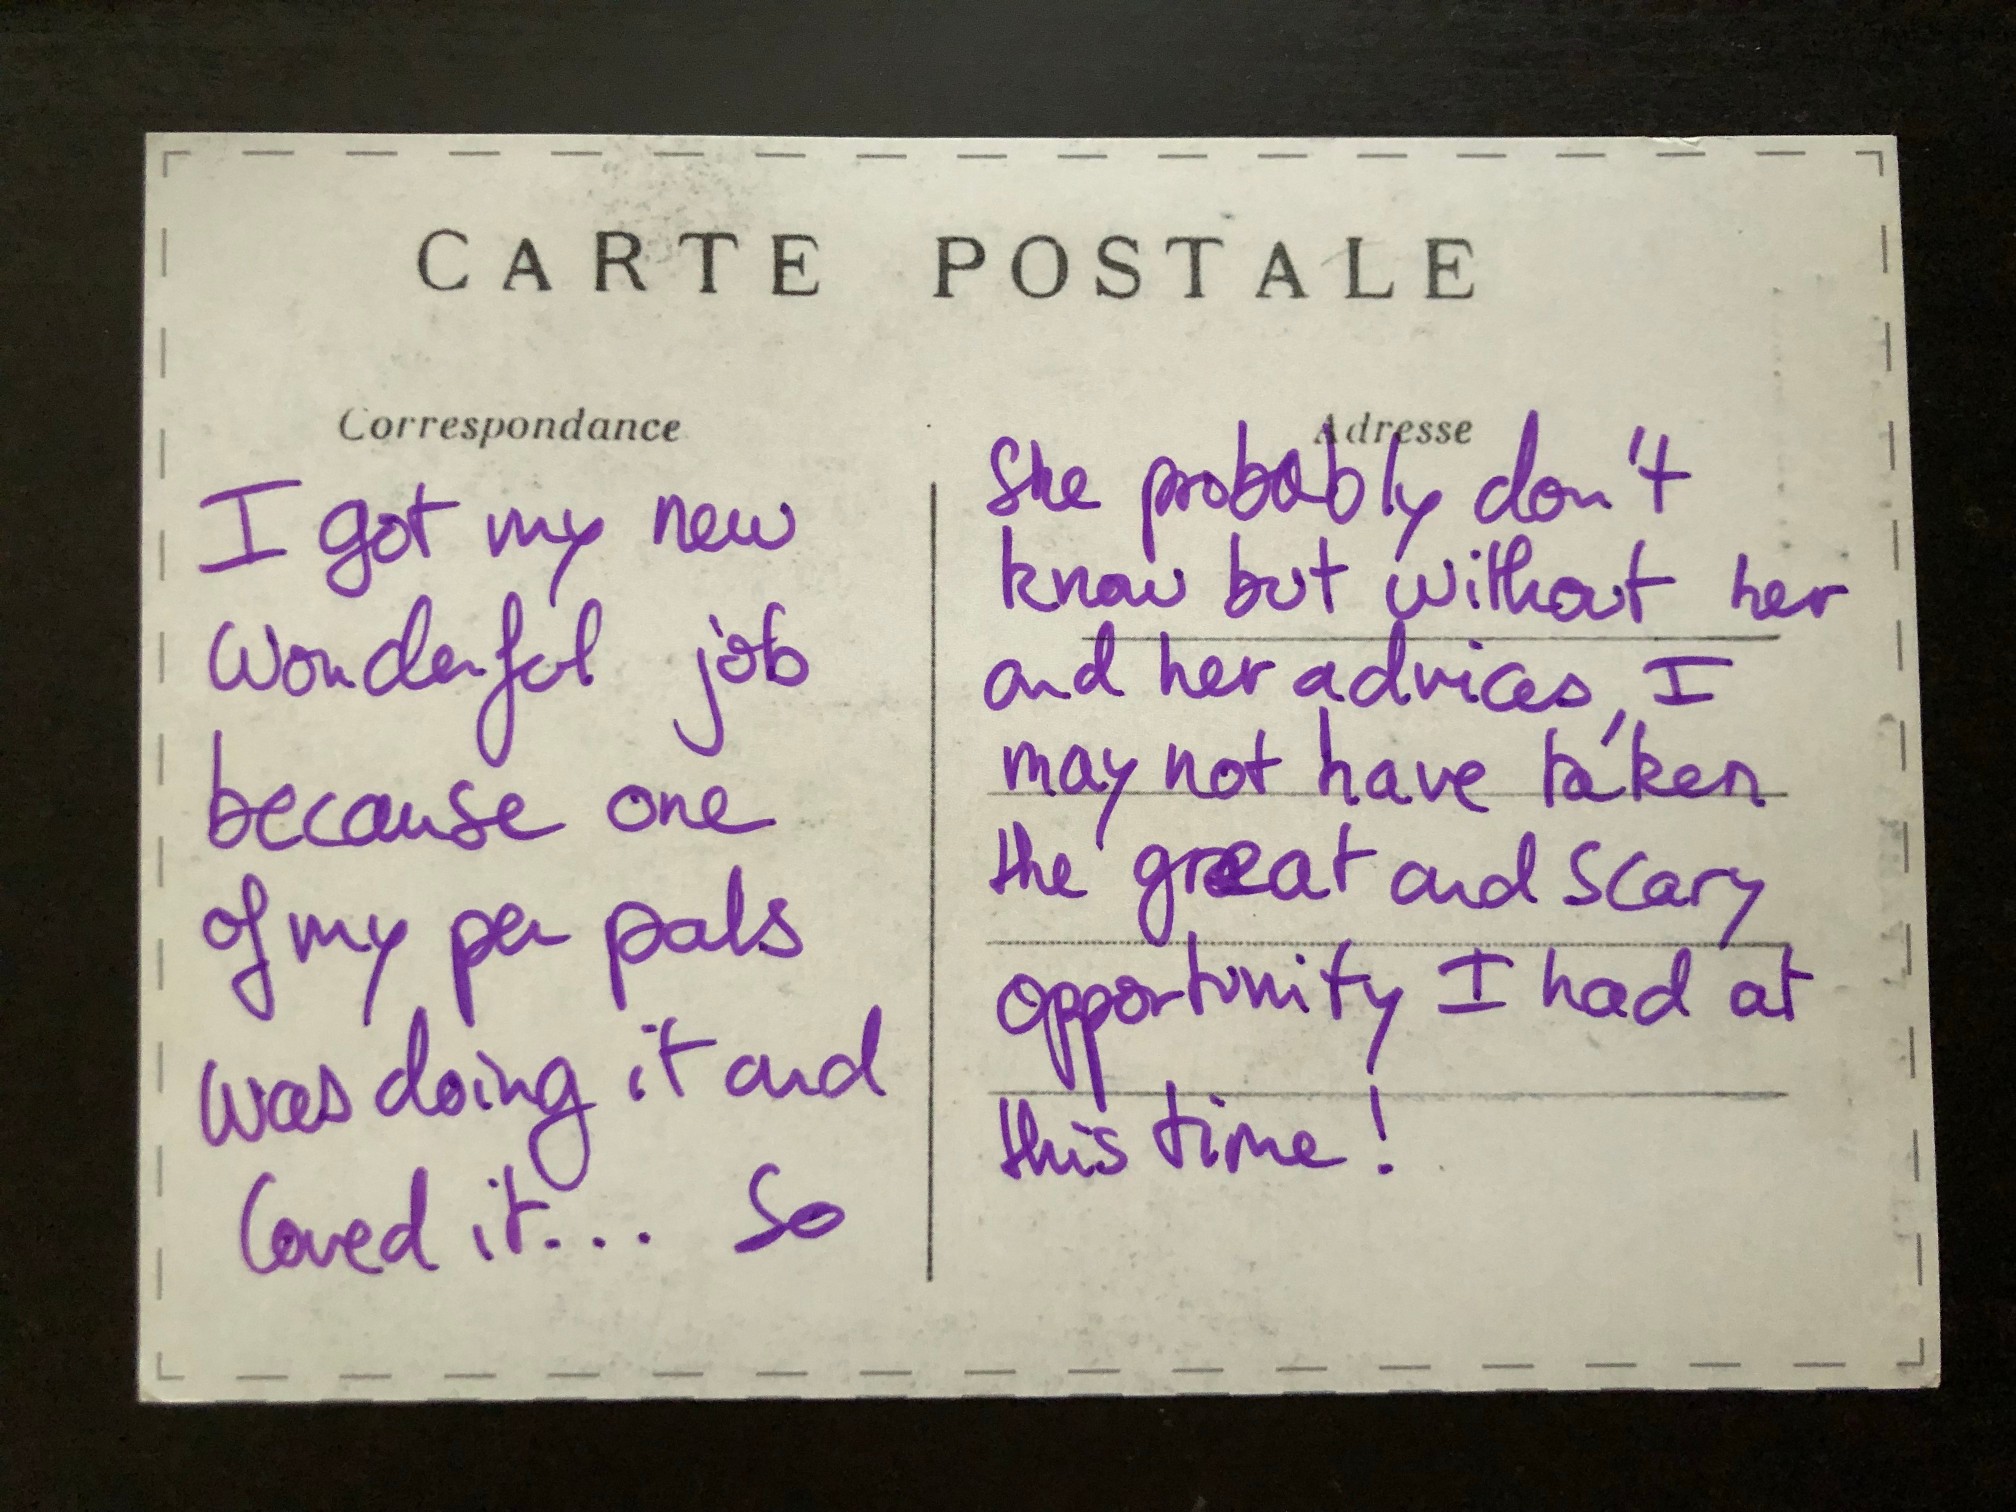 CARTE POSTALE
Correspondance
I got my new
wonderful job
because one
of my pen pals
was doing it and
loved it... So
Adresse
She probably don't
know but without her
and her advices, I
may not have taken
the great and scary
opportunity I had at
this time!